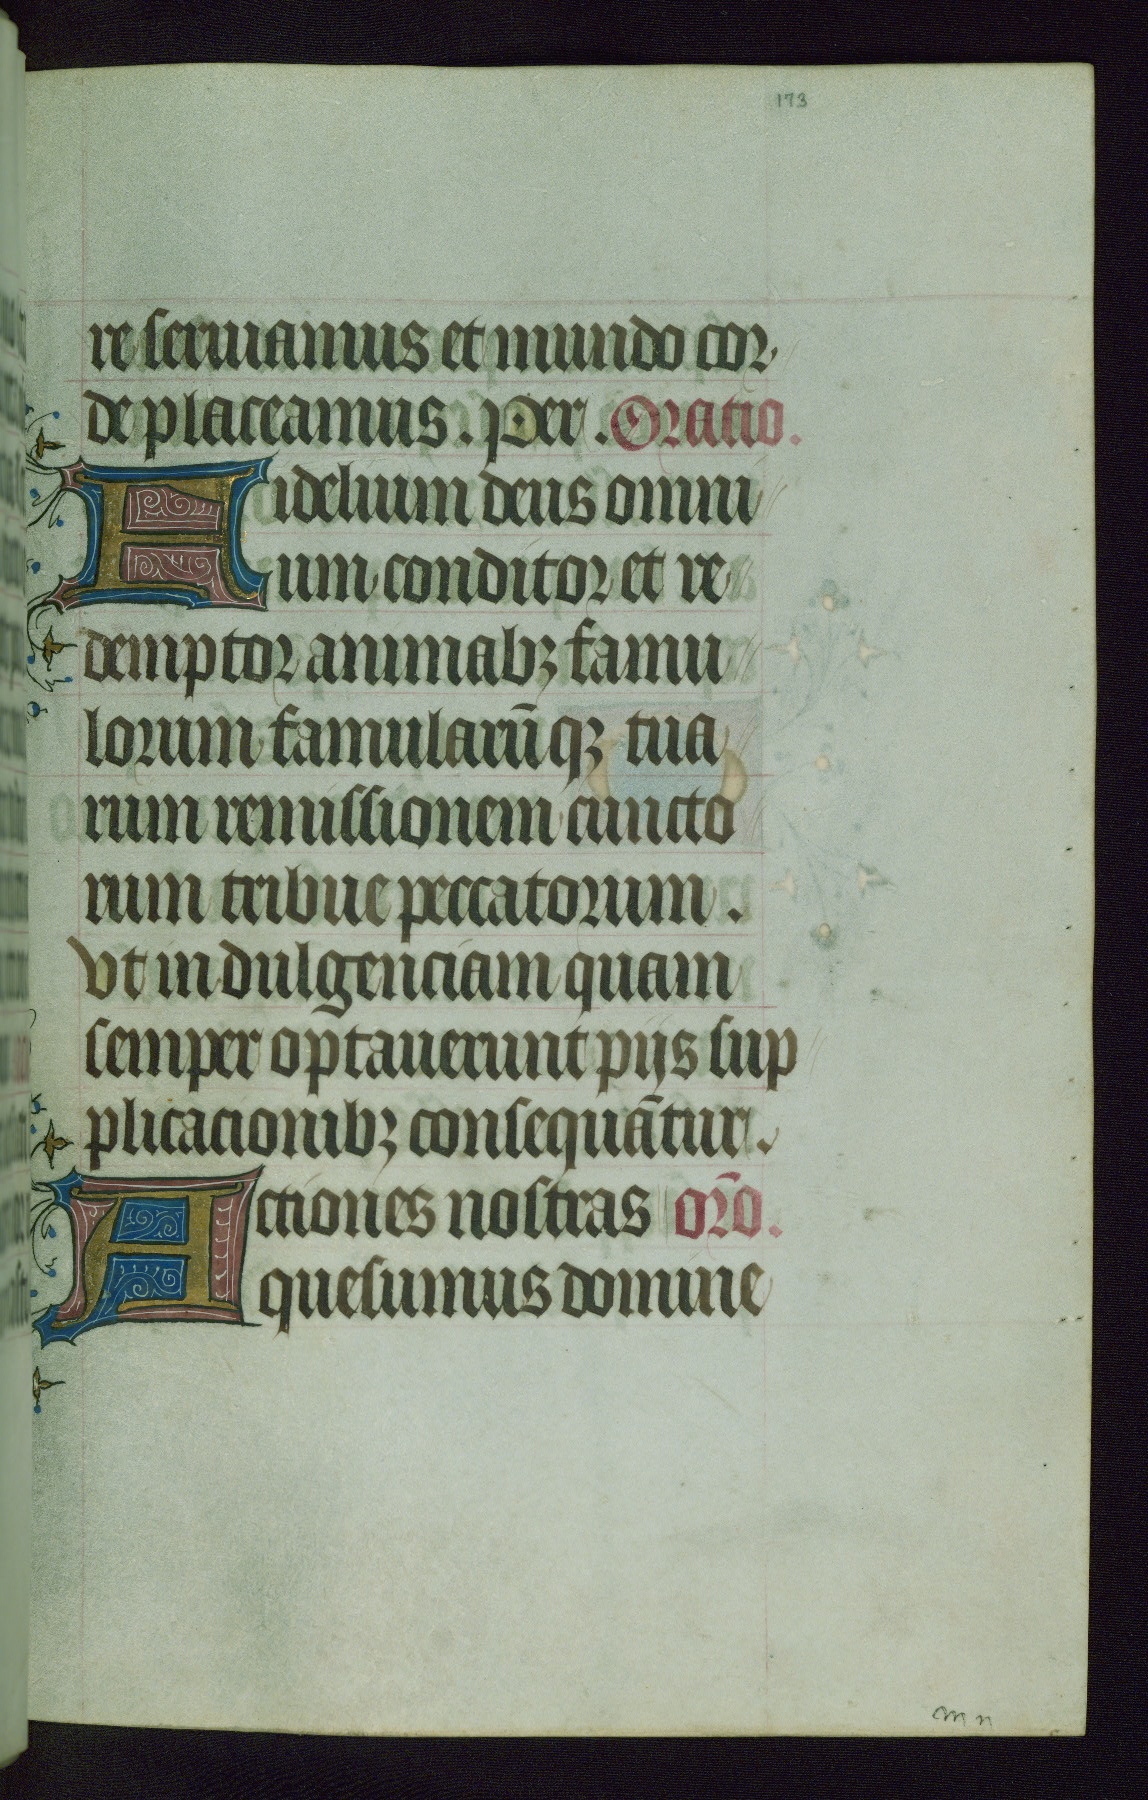 173
re seruiamus et mundo cor
de placeamus. Per. Oratio.
Fidelium deus omni
um conditor et re
demptor animabꝫ famu
lorum famularūqꝫ tua
rum remissionem cuncto
rum tribue peccatorum.
Vt indulgenciam quam
semper optauerunt pijs sup
plicacionibꝫ consequātur.
Actiones nostras oro̅.
quesumus domine
m n